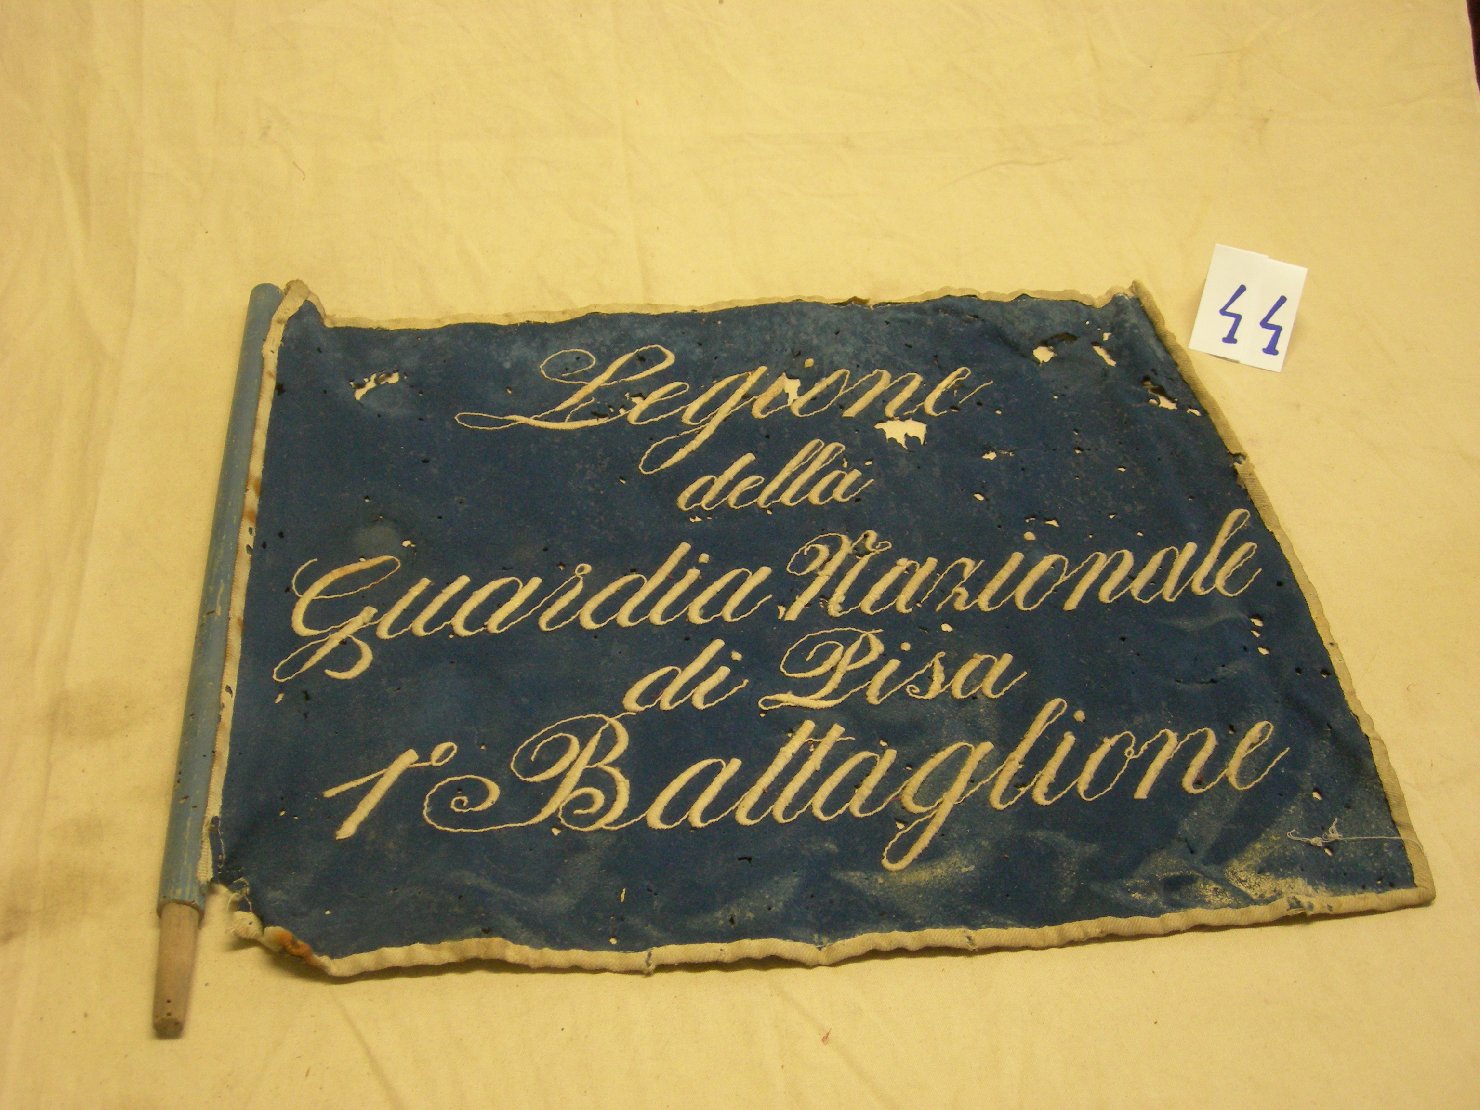 Legione
della
Guardia Nazionale
di Pisa
1º Battaglione
44